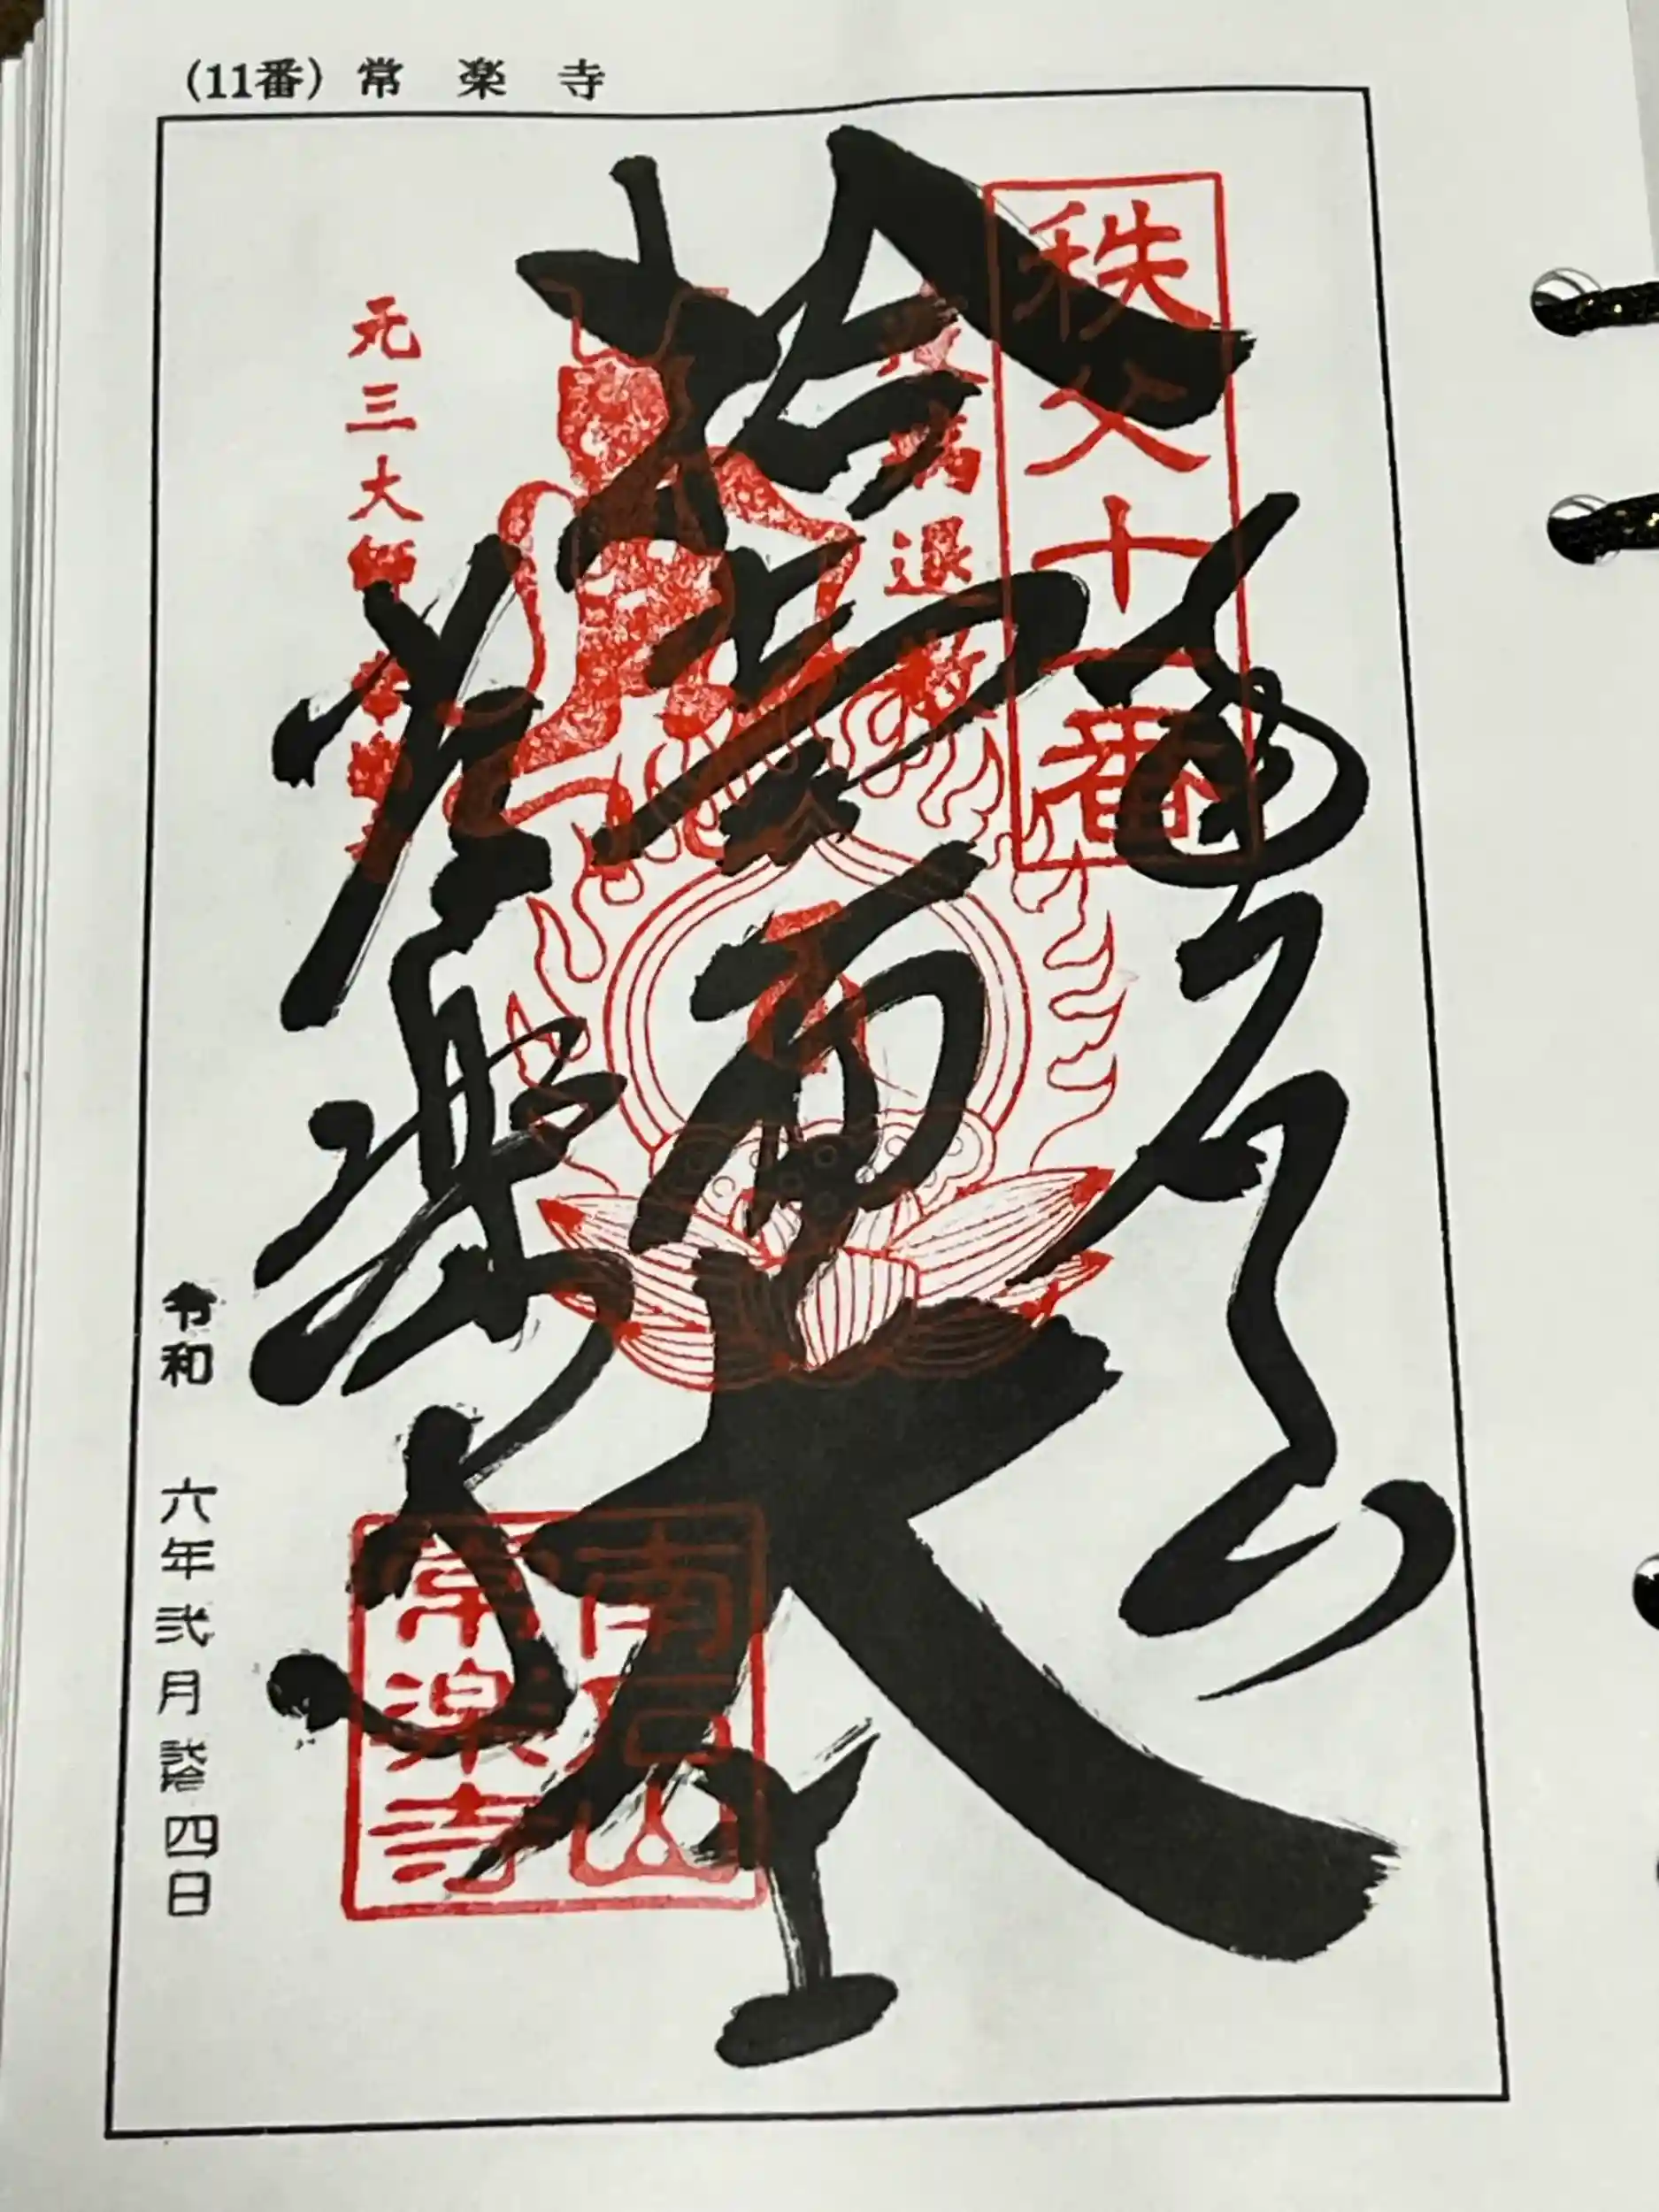 (11番) 常 楽 寺
秩父十一番
南石山
常楽寺
拾壱面大士
常楽寺
元三大師
令和 六年弐月 弐拾四日